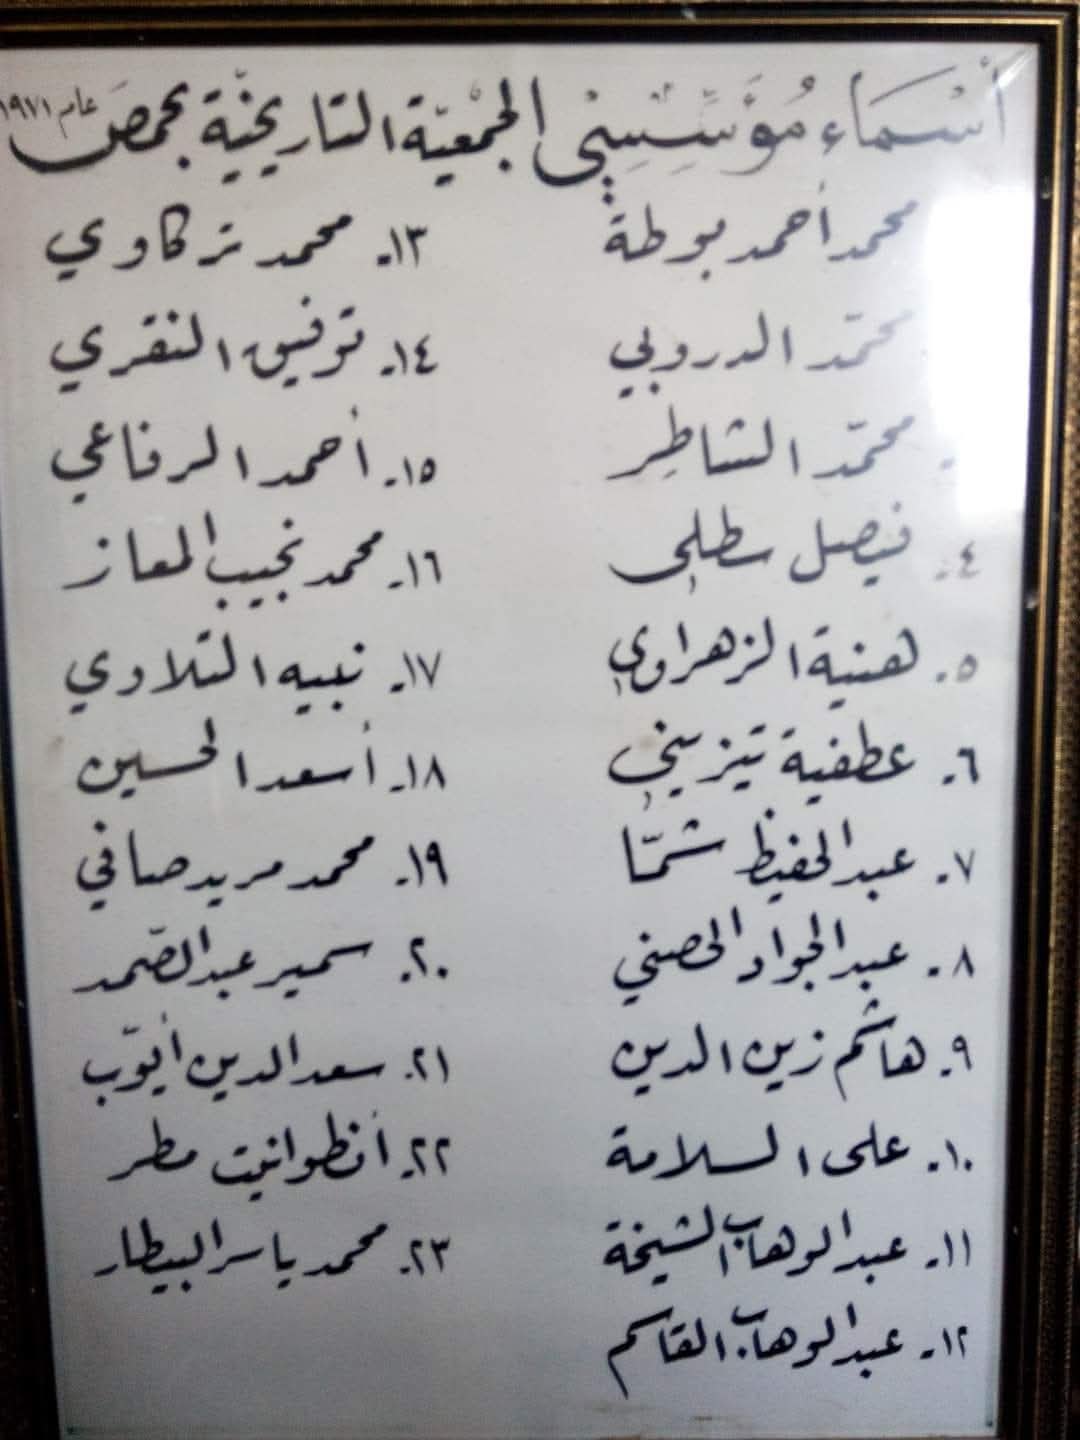 أسْمَاء مُؤَسِّسِي الجمْعيّة التاريخيّة بحمصَ عام ١٩٧١
محمد أحمد بوطة
محمّد الدروبي
محمّد الشاطِر
٤. فيصل سطلي
٥. هنية الزهراوي
٦. عطفية تيزيني
٧. عبد الحفيظ شمّا
٨. عبد الجواد الحصني
٩. هاشم زين الدين
١٠. على السلامة
١١. عبد الوهاب الشيخة
١٢. عبد الوهاب القاسم
١٣. محمد تركاوي
١٤. توفيق النقري
١٥. أحمد الرفاعي
١٦. محمد نجيب المعاز
١٧. نبيه التلاوي
١٨. أسعد الحسين
١٩. محمد مريد صافي
٢٠. سمير عبد الصّمد
٢١. سعد الدين أيّوب
٢٢. أنطوانيت مطر
٢٣. محمد ياسر البيطار